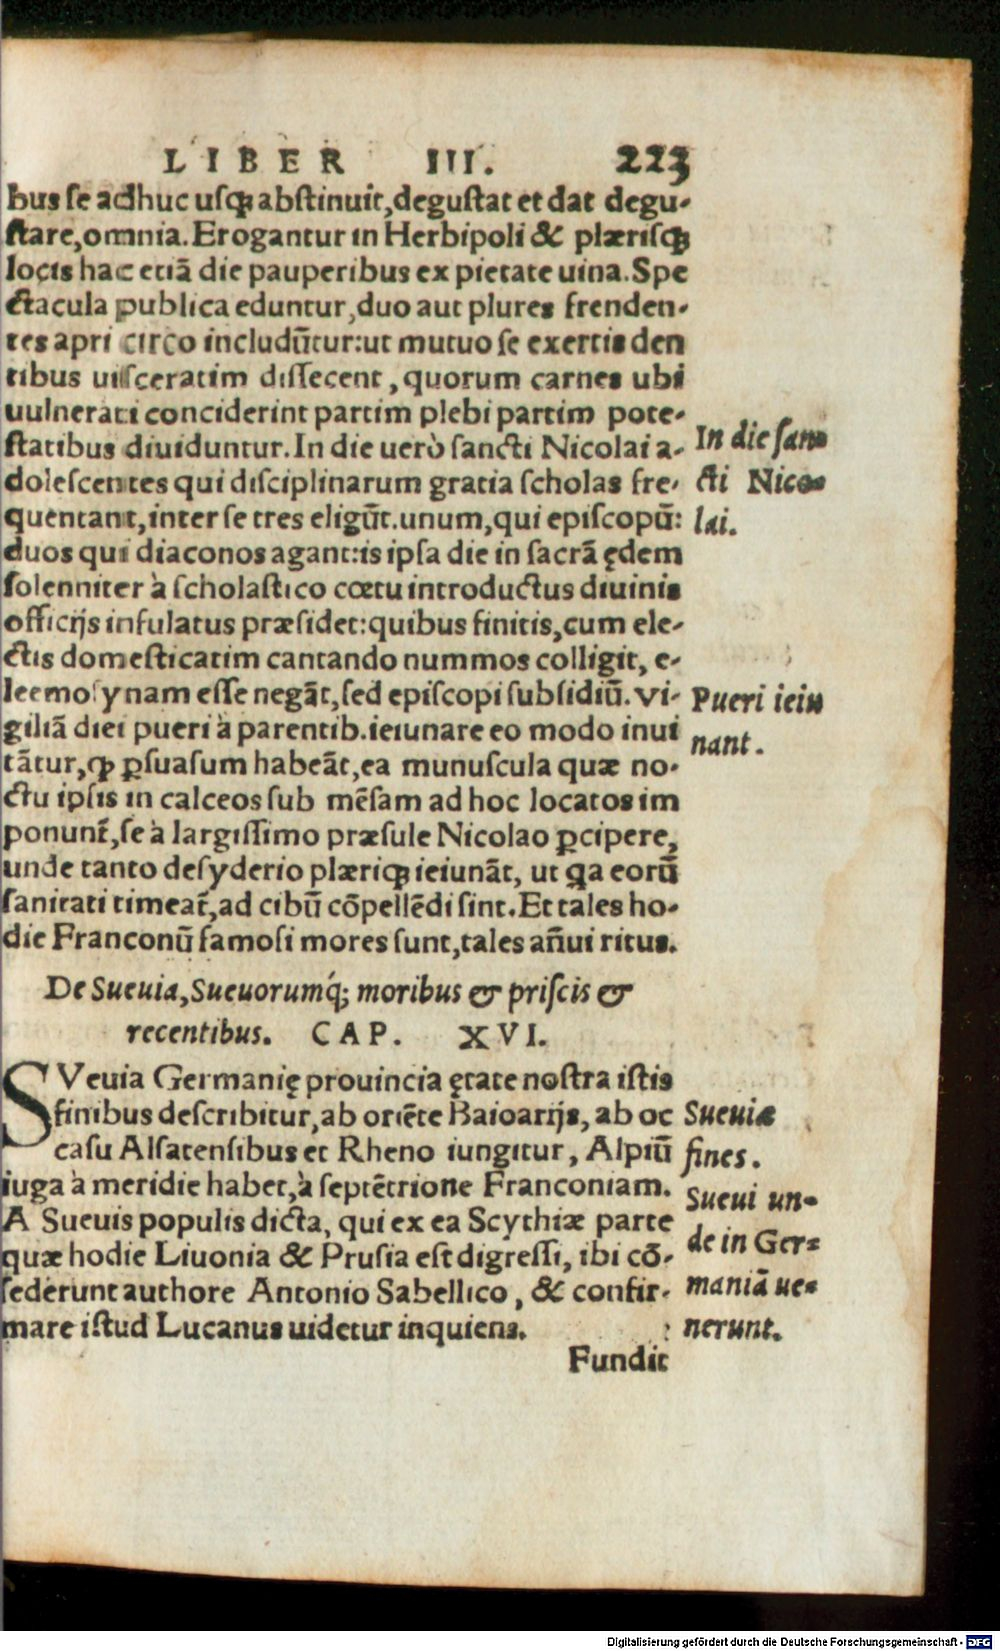 LIBER III. 223
bus se adhuc usq̃ abstinuit,degustat et dat degu-
stare,omnia.Erogantur in Herbipoli & plærisq̃
locis hac etiã die pauperibus ex pietate uina.Spe
ctacula publica eduntur,duo aut plures frenden-
tes apri circo includũtur:ut mutuo se exertis den
tibus uisceratim dissecent,quorum carnes ubi
uulnerati conciderint partim plebi partim pote-
statibus diuiduntur.In die uerò sancti Nicolai a-
In die san=
dolescentes qui disciplinarum gratia scholas fre-
cti Nico=
quentant,inter se tres eligũt.unum,qui episcopũ:
lai.
duos qui diaconos agant:is ipsa die in sacrã ędem
solenniter à scholastico cœtu introductus diuinis
officijs infulatus præsidet:quibus finitis,cum ele-
ctis domesticatim cantando nummos colligit, e-
leemosynam esse negãt,sed episcopi subsidiũ.Vi-
Pueri ieiu
giliã diei pueri à parentib.ieiunare eo modo inui
nant.
tãtur,ꝙ ꝑsuasum habeãt,ea munuscula quæ no-
ctu ipsis in calceos sub mẽsam ad hoc locatos im
ponunt̃,se à largissimo præsule Nicolao ꝑcipere,
unde tanto desyderio plæriq̃ ieiunãt, ut q̃a eorũ
sanitati timeat̃,ad cibũ cõpellẽdi sint.Et tales ho-
die Franconũ famosi mores sunt,tales añui ritus.
De Sueuia,Sueuorumq́; moribus & priscis &
recentibus. CAP. XVI.
SVeuia Germanię prouincia ętate nostra istis
finibus describitur,ab oriẽte Baioarijs, ab oc
Sueuiæ
casu Alsatensibus et Rheno iungitur, Alpiũ
fines.
iuga à meridie habet,à septẽtrione Franconiam.
Sueui un=
A Sueuis populis dicta, qui ex ea Scythiæ parte
quæ hodie Liuonia & Prusia est digressi, ibi cõ-
de in Ger=
sederunt authore Antonio Sabellico, & confir-
maniã ue=
mare istud Lucanus uidetur inquiens.
nerunt.
Fundit
Digitalisierung gefördert durch die Deutsche Forschungsgemeinschaft - DFG